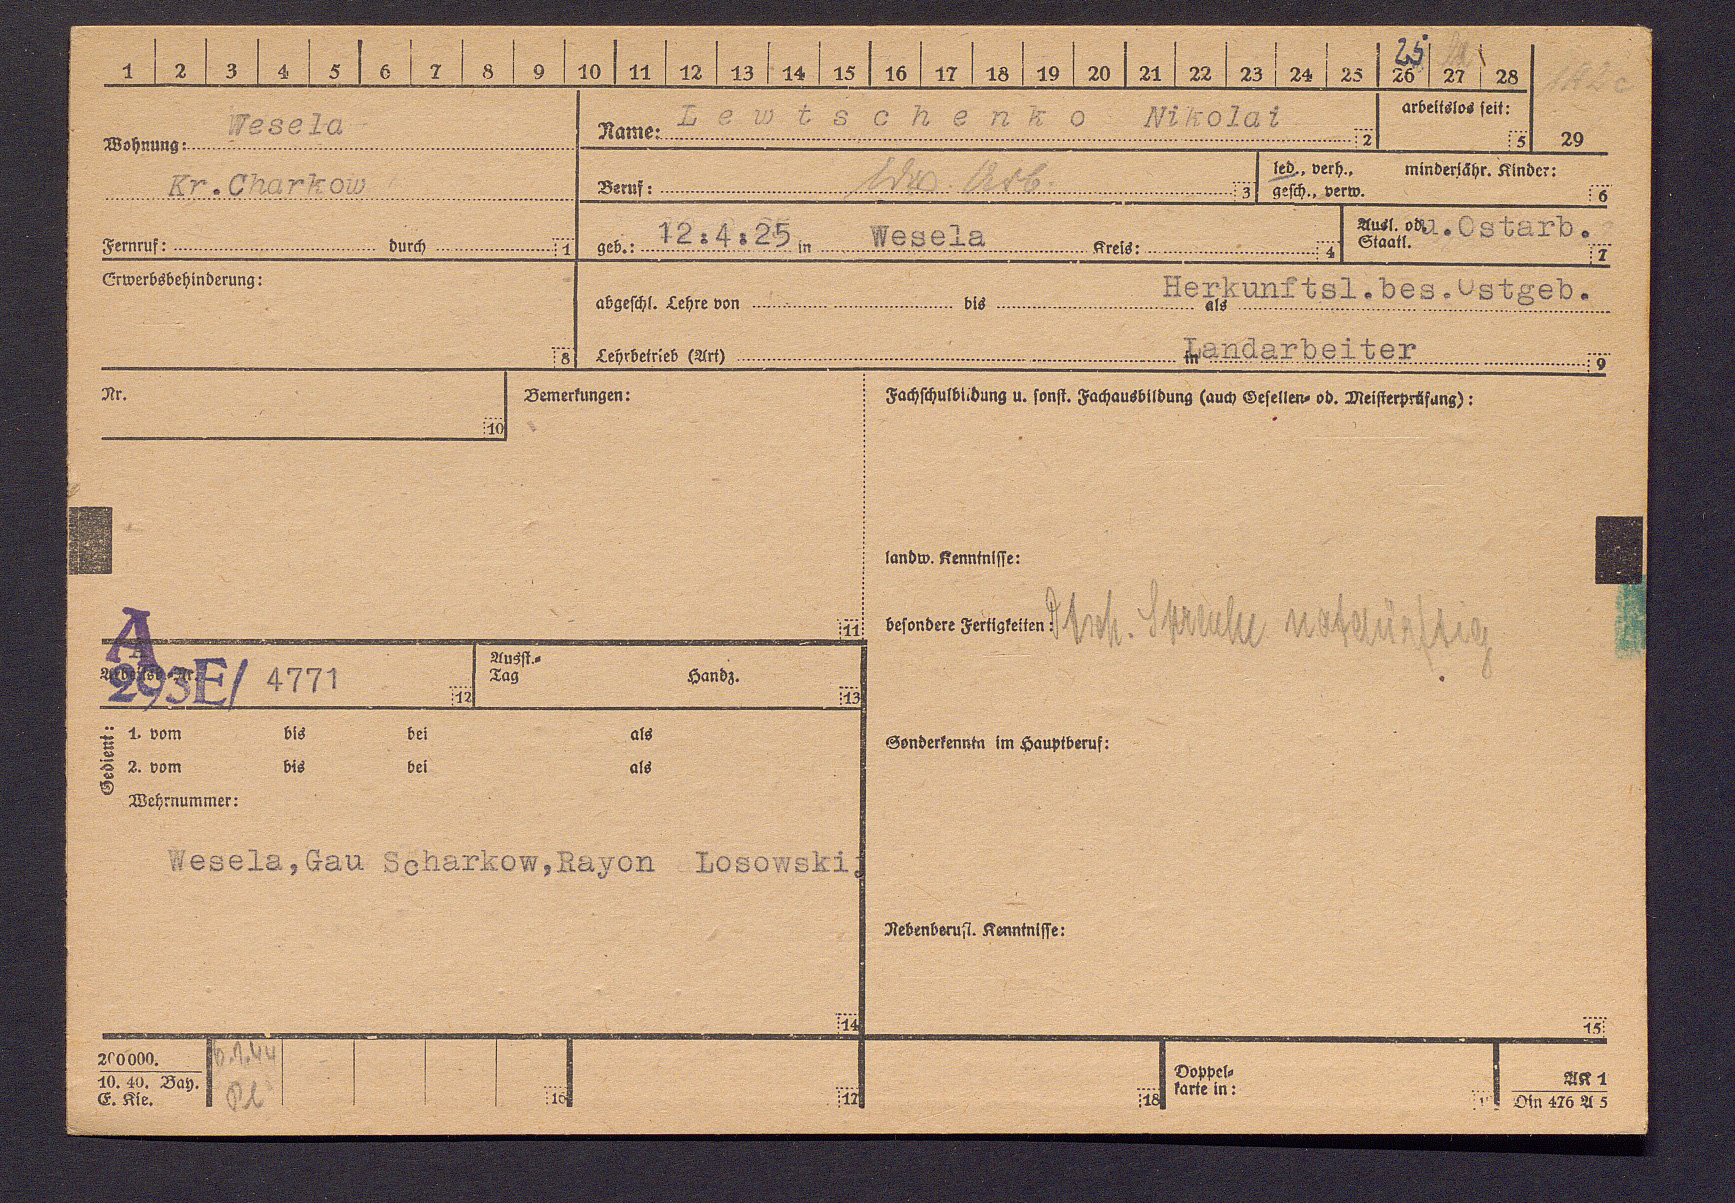 1 2 3 4 5 6 7 8 9 10 11 12 13 14 15 16 17 18 19 20 21 22 23 24 25 26 27 28
25
Wohnung: Wesela
Kr.Charkow
Fernruf: durch 1
Name: Lewtschenko Nikolai 2
arbeitslos seit: 5
29
Beruf: 3
led., verh., gesch., verw.
minderjähr. Kinder: 6
geb.: 12.4.25 in Wesela Kreis: 4
Ausl. od. Staatl. u.Ostarb. 7
Erwerbsbehinderung: 8
Herkunftsl.bes.Ostgeb.
abgeschl. Lehre von bis als
Lehrbetrieb (Art) in Landarbeiter 9
Nr. 10
Bemerkungen: 11
Fachschulbildung u. sonst. Fachausbildung (auch Gesellen- od. Meisterprüfung):
landw. Kenntnisse:
besondere Fertigkeiten: Dtsch. Sprache notdürftig
A
Arbeitsb.-Nr.
293E/ 4771 12
Ausst.-Tag Handz. 13
Gedient:
1. vom bis bei als
2. vom bis bei als
Wehrnummer:
Sonderkenntn im Hauptberuf:
Wesela,Gau Scharkow,Rayon Losowskij
14
Nebenberufl. Kenntnisse:
15
200000.
10. 40. Bay.
E. Kie.
6.1.44
16 17 18
Doppel-
karte in:
AK 1
Din 476 A 5